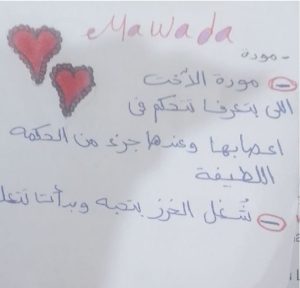 Mawada
- مودة
- مودة الأخت
اللى بتعرف تتحكم فى
اعصابها وعندها جزء من الحكمه
اللطيفة
- شغل الغرز بتحبه وبدأت تتعل